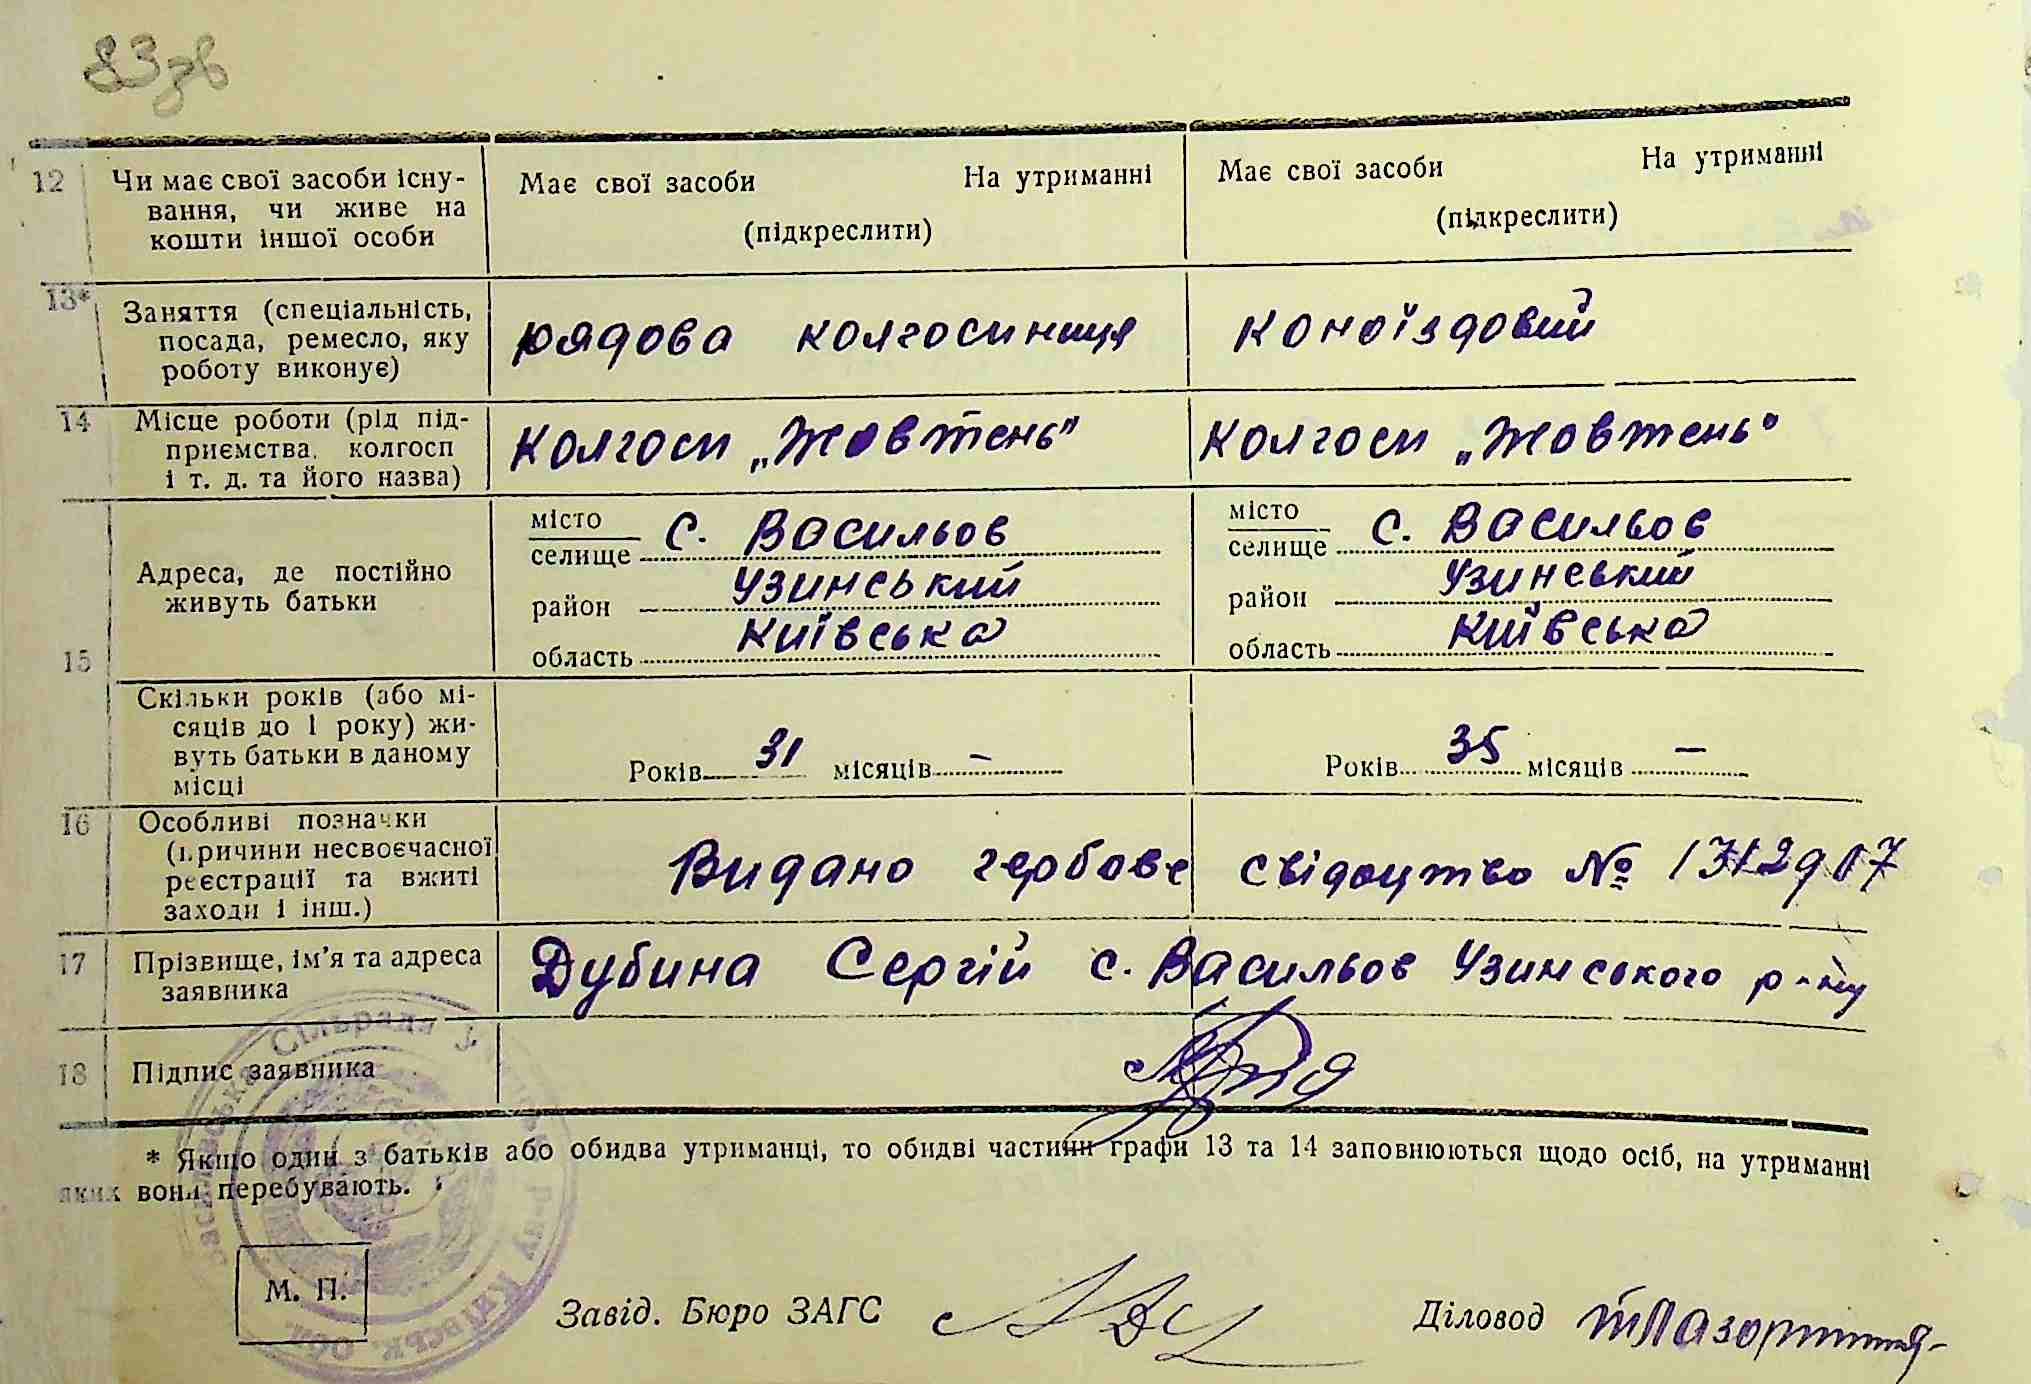 83зв
12 Чи має свої засоби існу-
вання, чи живе на
кошти іншої особи
Має свої засоби На утриманні
(підкреслити)
Має свої засоби На утриманні
(підкреслити)
13* Заняття (спеціальність,
посада, ремесло, яку
роботу виконує)
рядова колгоспниця
коноїздовий
14 Місце роботи (рід під-
приємства, колгосп
і т. д. та його назва)
колгосп „Жовтень"
колгосп „Жовтень"
15 Адреса, де постійно
живуть батьки
місто
селище с. Васильов
район Узинський
область Київська
місто
селище с. Васильов
район Узинський
область Київська
Скільки років (або мі-
сяців до 1 року) жи-
вуть батьки в даному
місці
Років 31 місяців —
Років 35 місяців —
16 Особливі позначки
(причини несвоєчасної
реєстрації та вжиті
заходи і інш.)
Видано гербове свідоцтво №
17 Прізвище, ім'я та адреса
заявника
Дубина Сергій с. Васильов Узинського р-ну
18 Підпис заявника
* Якщо один з батьків або обидва утриманці, то обидві частини графи 13 та 14 заповнюються щодо осіб, на утриманні
яких вони перебувають.
Сільрада
р-ну Київськ. обл.
М. П.
Завід. Бюро ЗАГС
Діловод